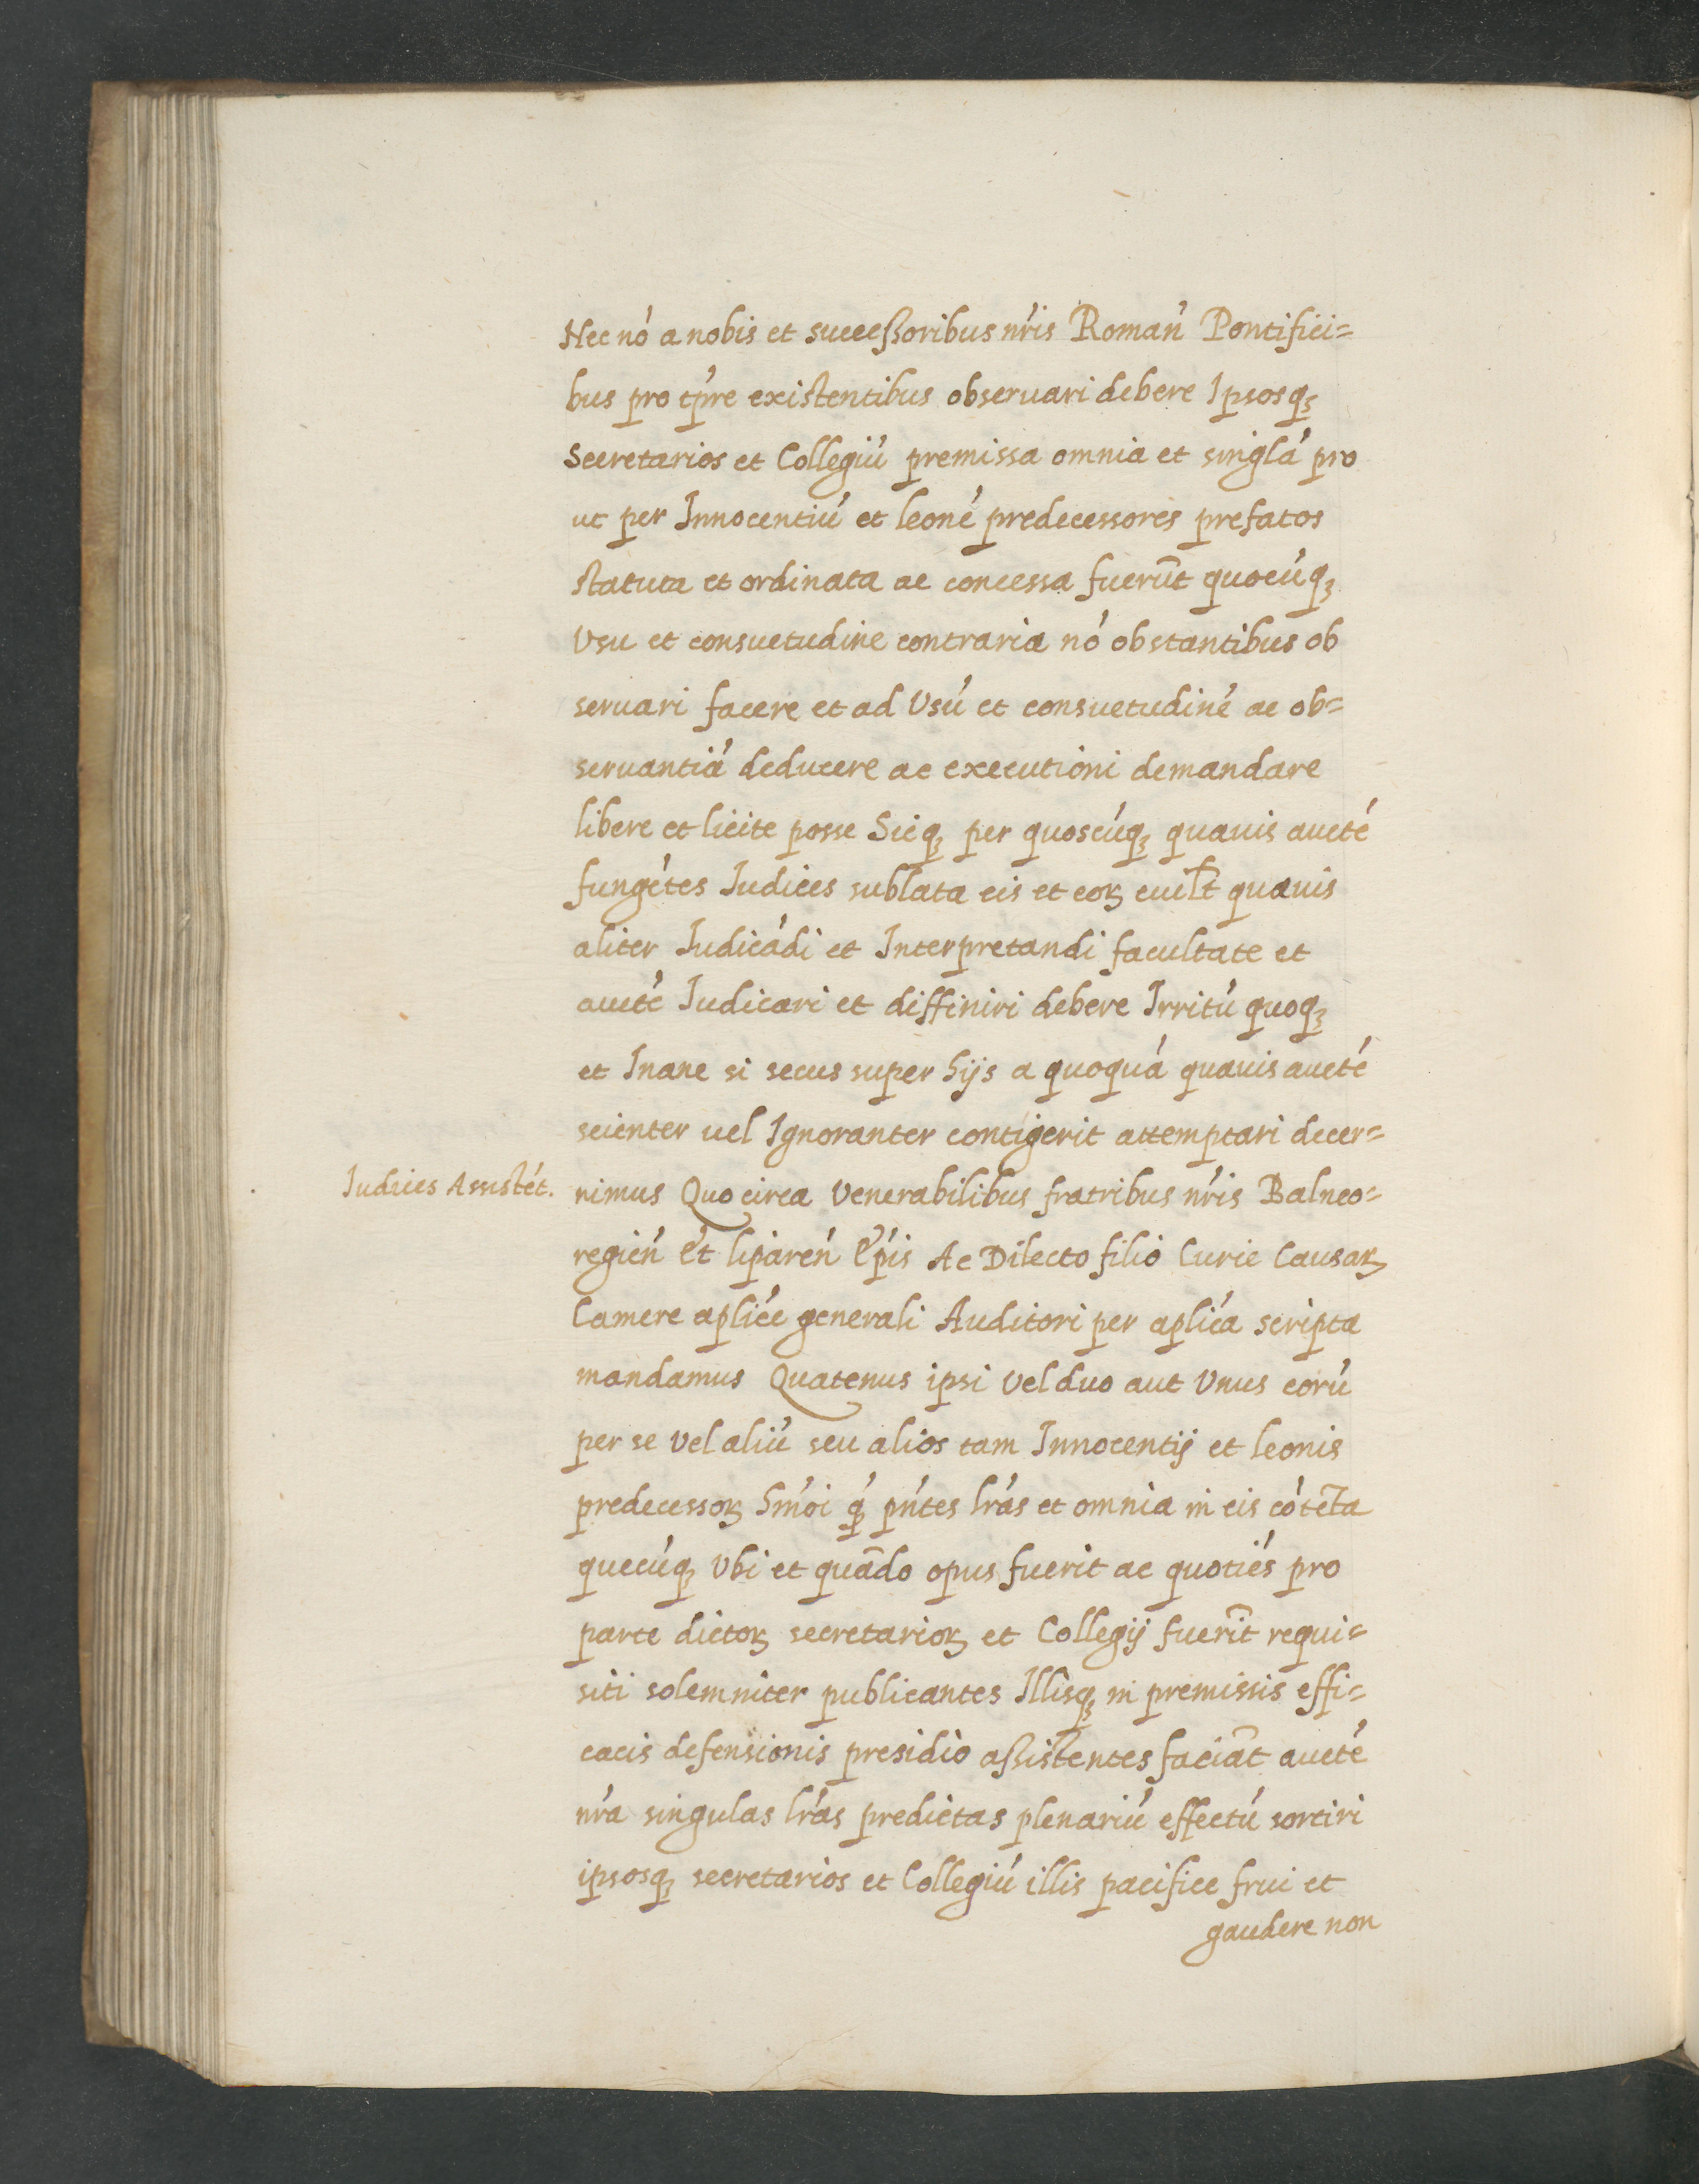 Nec nó a nobis et succeßoribus nŕis Roman̍ Pontifici=
bus pro tp̍re existentibus obseruari debere Ipsosqꝫ
Secretarios et Collegiú premissa omnia et singlá pro
ut per Innocentiú et leoné predecessores prefatos
statuta et ordinata ac concessa fuerūt quocúqꝫ
Vsu et consuetudine contraria nó obstantibus ob
seruari facere et ad Vsú et consuetudiné ac ob=
seruantiá deducere ac executioni demandare
libere et licite posse Sicqꝫ per quoscúqꝫ quauis aucté
fungétes Iudices sublata eis et eoꝝ cuil̄t quauis
aliter Iudicádi et Interpretandi facultate et
aucté Iudicari et diffiniri debere Irritú quoqꝫ
et Inane si secus super hijs a quoquá quauis aucté
scienter uel Ignoranter contigerit attemptari decer=
Iudices Assistét.
nimus Quocirca Venerabilibus fratribus nŕis Balneo=
regień Et lipareń Ep̍is Ac Dilecto filio Curie Causaꝝ
Camere aplićé generali Auditori per aplićá scripta
mandamus Quatenus ipsi Vel duo aut Vnus eorú
per se Vel aliú seu alios tam Innocentij et leonis
predecessoꝝ hm̍oi q̍ pńtes lŕas et omnia in eis cótēta
quecúqꝫ Vbi et quādo opus fuerit ac quotiés pro
parte dictoꝝ secretarioꝝ et Collegij fuerīt requi=
siti solemniter publicantes Illisqꝫ in premissis effi=
cacis defensionis presidio aßistentes faciāt aucté
nŕa singulas lŕas predictas plenariú effectú sortiri
ipsosqꝫ secretarios et Collegiú illis pacifice frui et
gaudere non